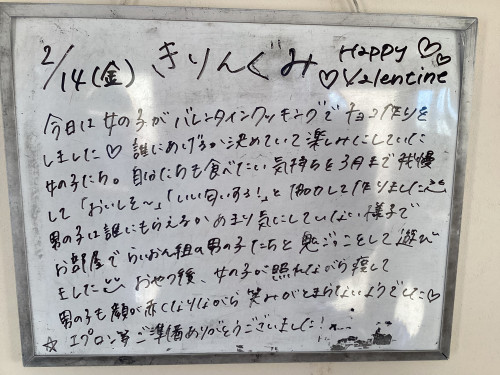 2/14(金) きりんぐみ Happy♡♡
♡Valentine
今日は女の子がバレンタインクッキングでチョコ作りを
しました♡ 誰にあげるか決めていて楽しみにしていた
女の子たち。自分たちも食べたい気持ちを3月まで我慢
して「おいしそ〜」「いい匂いする!」と協力して作りました
男の子は誰にもらえるかあまり気にしていない様子で
お部屋でらいおん組の男の子たちと鬼ごっこして遊び
ました おやつ後、女の子が照れながら渡して
男の子も顔が赤くなりながら笑みがとまらないようでした♡
☆エプロン等ご準備ありがとうございました!